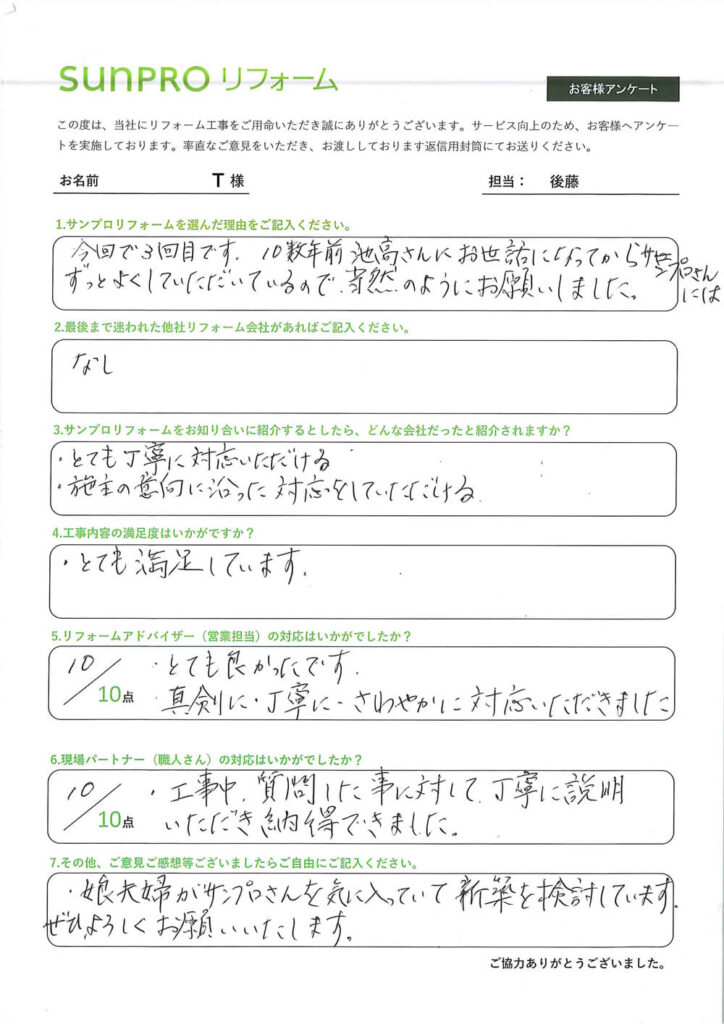 sunPRO リフォーム
お客様アンケート
この度は、当社にリフォーム工事をご用命いただき誠にありがとうございます。サービス向上のため、お客様へアンケー
トを実施しております。率直なご意見をいただき、お渡ししております返信用封筒にてお送りください。
お名前 T 様 担当： 後藤
1.サンプロリフォームを選んだ理由をご記入ください。
今回で3回目です。10数年前池高さんにお世話になってからサンプロさんには
ずっとよくしていただいているので、当然のようにお願いしました。
2.最後まで迷われた他社リフォーム会社があればご記入ください。
なし
3.サンプロリフォームをお知り合いに紹介するとしたら、どんな会社だったと紹介されますか？
・とても丁寧に対応いただける
・施主の意向に沿った対応をしていただける
4.工事内容の満足度はいかがですか？
・とても満足しています。
5.リフォームアドバイザー（営業担当）の対応はいかがでしたか？
10／10点 ・とても良かったです。
真剣に・丁寧に・さわやかに対応いただきました
6.現場パートナー（職人さん）の対応はいかがでしたか？
10／10点 ・工事中、質問した事に対して、丁寧に説明
いただき納得できました。
7.その他、ご意見ご感想等ございましたらご自由にご記入ください。
・娘夫婦がサンプロさんを気に入っていて新築を検討しています。
ぜひよろしくお願いいたします。
ご協力ありがとうございました。